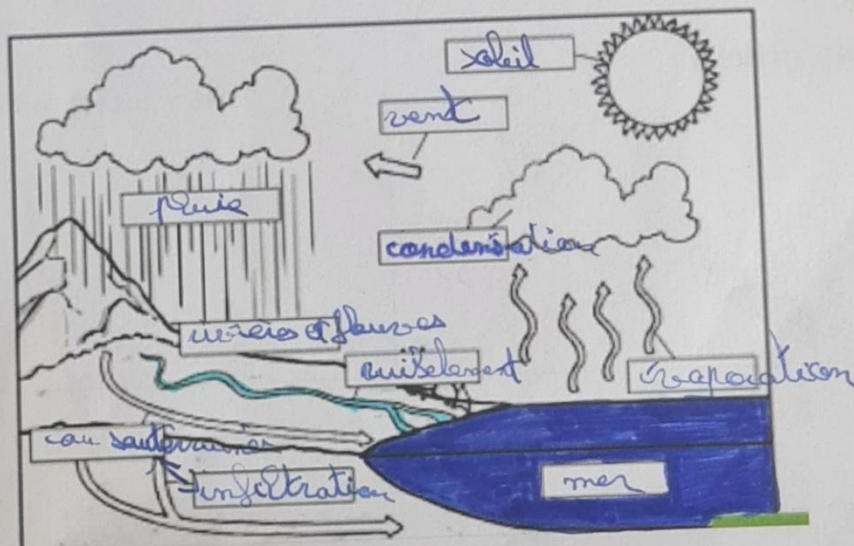 soleil
vent
pluie
condensation
rivières et fleuves
ruisselement
évaporation
eau souterraines
infiltration
mer